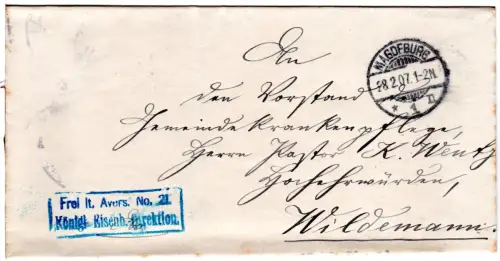 An
MAGDEBURG
28.2.07.1-2N.
* 1 n
den Vorstand
Gemeindekrankenpflege,
Herrn Pastor K. Wentz
Hochehrwürden,
Wildemann.
Frei lt. Avers. No. 21.
Königl. Eisenb. Direktion.